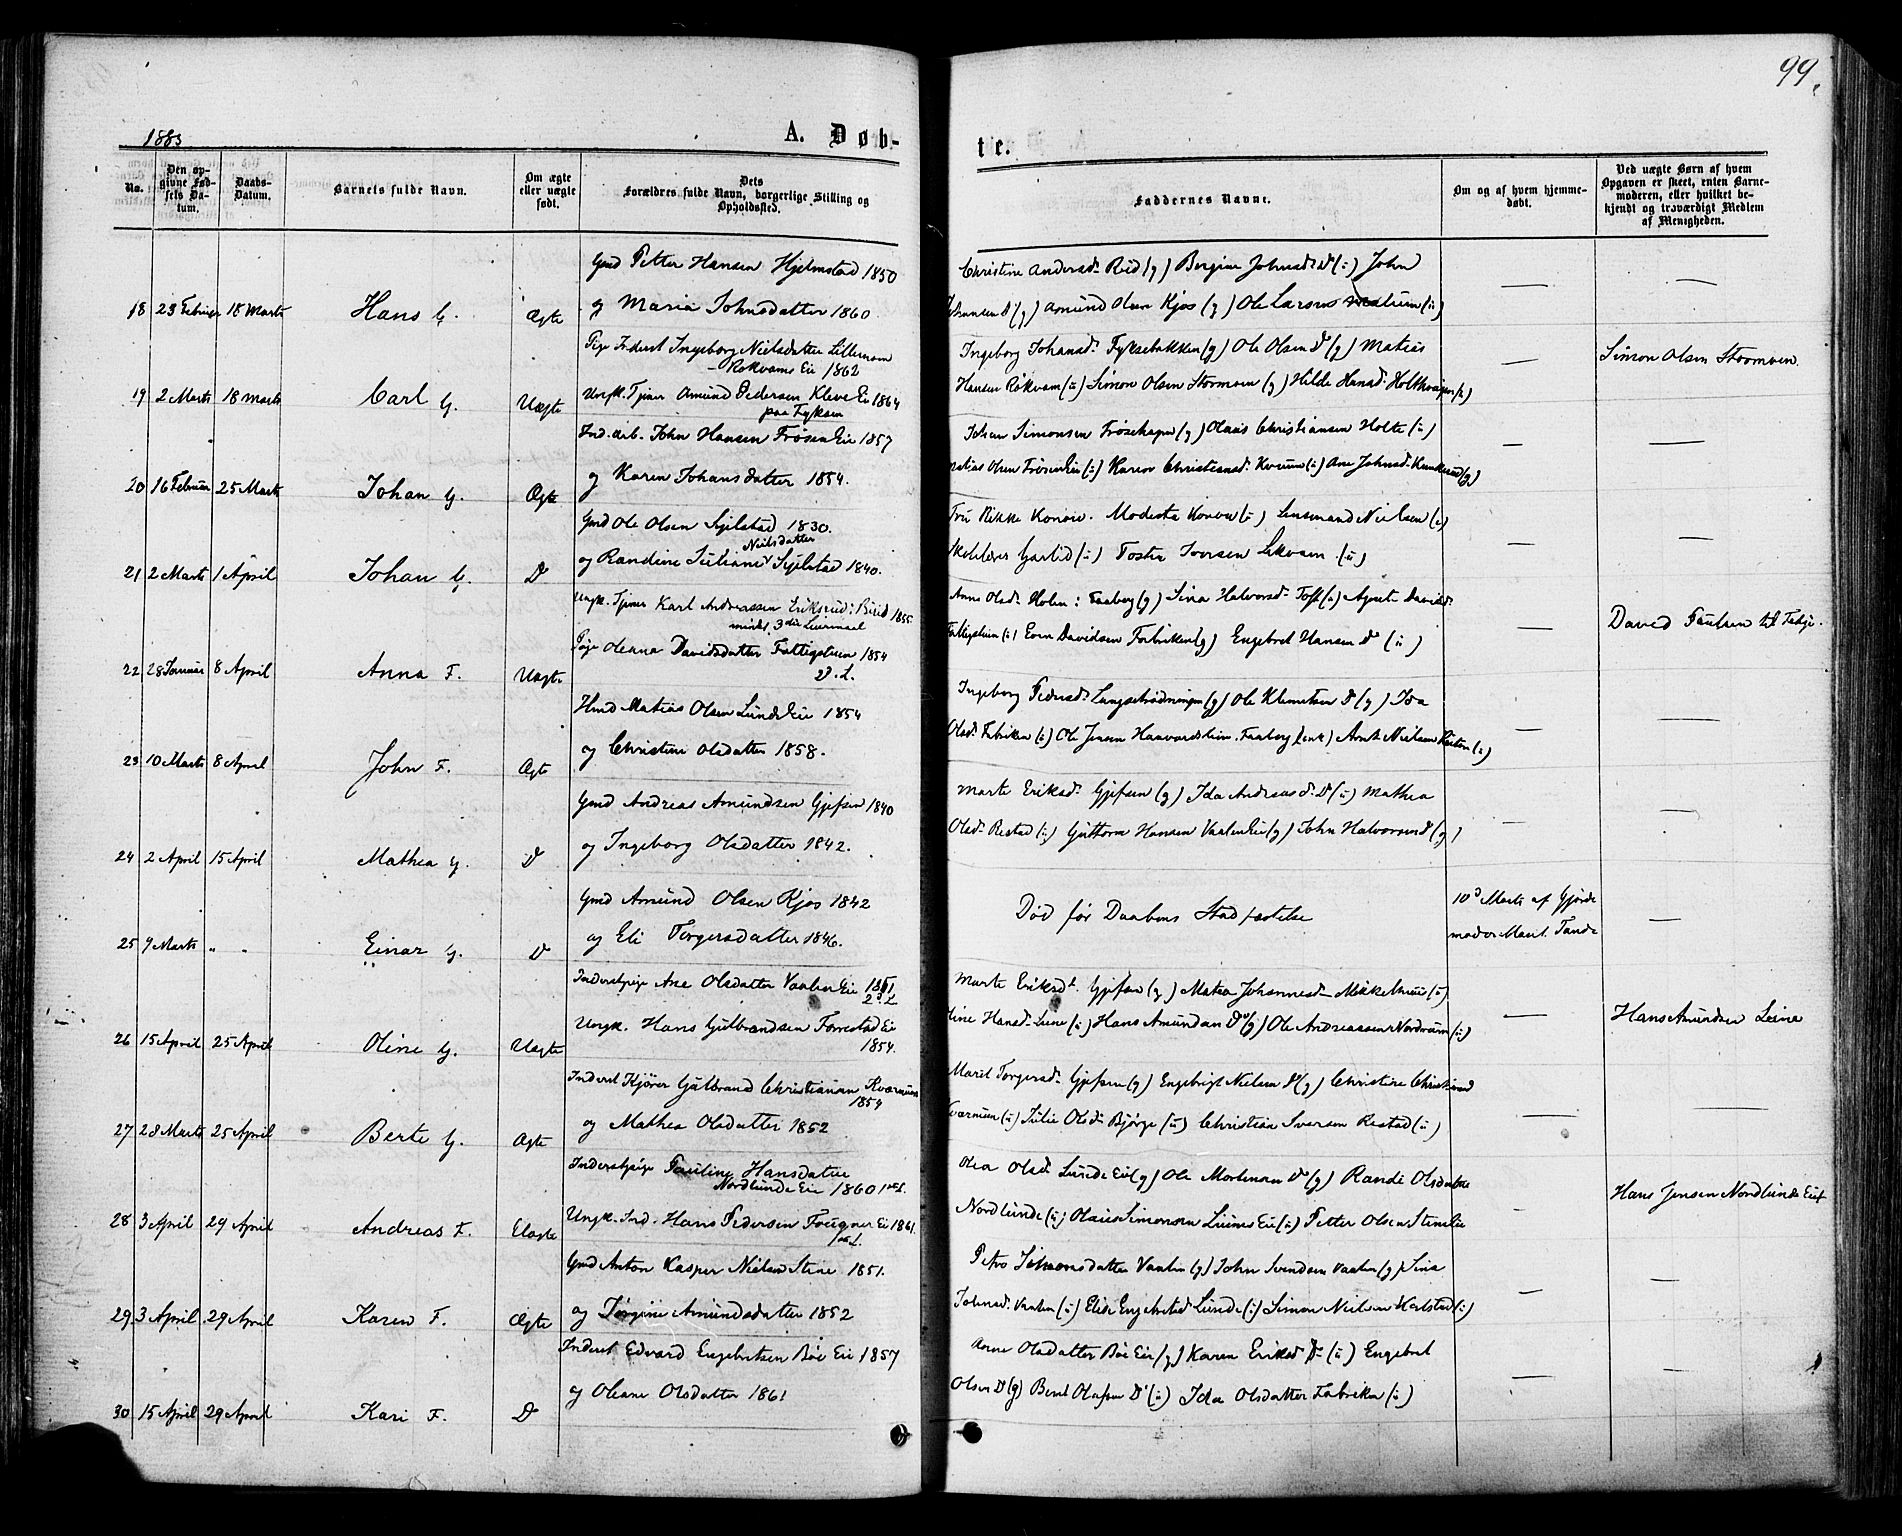 99.
1883.
A. Døb-
te.
No.
Den op-
givne Fød-
sels Da-
tum.
Daabs-
Datum.
Barnets fulde Navn.
Om ægte
eller uægte
født.
Dets
Forældres fulde Navn, borgerlige Stilling og
Opholdssted.
Faddernes Navne.
Om og af hvem hjemme-
døbt.
Ved uægte Børn af hvem
Opgaven er skeet, enten Barne-
moderen, eller hvilket be-
kjendt og troværdigt Medlem
af Menigheden.
Gmd Petter Hansen Hjelmstad 1850
18 23 Februar 18 Marts Hans G. Ægte og Maria Johnsdatter 1860
Christine Andersd. Rud (g) Bergine Johnsd. Do (u) John
Hansen Do (g) Amund Olsen Kjos (g) Ole Larsen (u)
Pige Inderst Ingeborg Nielsdatter Lillemoen
Rokvams Ei 1862
19 2 Marts 18 Marts Carl G. Uægte Ungk. Tjener Amund Pedersen Kleve Ei 1864
paa Fyksen
Ingeborg Johansd. Fyksebakken (g) Ole Olsen Do (g) Matias
Hansen Rokvam (u) Simon Olsen Stormoen (g) Hilde Hansd.
Simon Olsen Stormoen.
Ind. arb. John Hansen Frøsen Eie 1857
20 16 Februar 25 Marts Johan G. Ægte og Karen Johansdatter 1854.
Johan Simonsen Frøsehagen (g) Olaus Christiansen Holte (u)
Matias Olsen Frøsen Eie (u) Karen Christiansd. Kværum (u) Ane Johnsd. (g)
Gmd Ole Olsen Sylstad 1830.
Nielsdatter
21 2 Marts 1 April Johan G. Do og Randine Juliane Sylstad 1840.
Fru Rikke Konow. Modesta Konow (u) Lensmand Nielsen (u)
Skolelærer (u) Iversen (u)
Ungk. Tjener Karl Andreassen Eriksrud i Birid 1855
mindst 3die Leiermaal
22 28 Januar 8 April Anna F. Uægte Pige Oleana Davidsdatter Fattigstuen 1854
2d. L.
Anne Olsd. Holen i Faaberg (g) Sina Halvorsd. (u) Agnete Davidsd.
Fattigstuen (u) Even Davidsen Fabriken (g) Engebret Hansen Do (u)
David Paulsen
Hmd Matias Olsen Lunde Eie 1854
23 10 Marts 8 April John F. Ægte og Christine Olsdatter 1858.
Ingeborg Pedersd. (g) Ole Klemetsen Do (g) Ida
Olsd. Fabriken (u) Ole Jensen Faaberg (enk) Arnt Nielsen (u)
Gmd Andreas Amundsen Gjefsen 1840
24 2 April 15 April Mathea G. Do og Ingeborg Olsdatter 1842.
Marte Eriksd. Gjefsen (g) Ida Andreasd. Do (u) Mathea
Olsd. Restad (u) Guttorm Hansen Vaalen Eie (g) John Halvorsen Do (g)
Gmd Amund Olsen Kjos 1842
25 9 Marts " " Einar G. Do og Eli Torgersdatter 1846.
Død før Daabens Stadfæstelse
10d Marts af Gjorde
moder Marit Tande
Inderstpige Ane Olsdatter Vaalen Eie 1861
2d L
26 15 April 25 April Oline G. Uægte Ungk. Hans Gulbrandsen Forrestad Ei
1854.
Marte Eriksd. Gjefsen (g) Matea Johannesd. (u)
Hansd. Leine (u) Hans Amundsen Do (g) Ole Andreassen Nordrum (u)
Hans Amundsen Leine
Inderst Kjører Gulbrand Christiansen Kværnum
1854
27 28 Marts 25 April Berte G. Ægte og Mathea Olsdatter 1852
Marit Torgersd. Gjefsen (g) Engebrigt Nielsen Do (g) Christine Christiansd.
Kværnum (u) Julie Olsd. Bjørge (u) Christian Iversen Restad (u)
Inderstpige Pauline Hansdatter
Nordlunde Eie 1860 1ste L.
28 3 April 29 April Andreas F. Uægte Ungk. Ind. Hans Pedersen Fougner Ei 1861.
1ste L.
Olea Olsd. Lunde Eie (g) Ole Mortensen Do (g) Randi Olsdatter
Nordlunde (u) Olaus Simonsen Eie (u) Petter Olsen
Hans Jensen Nordlunde Eie
Gmd Anton Kasper Nielsen Stene 1851.
29. 3 April 29 April Karen F. Ægte og Jørgine Amundsdatter 1852
Petro Simonsdatter Vaalen (g) John Svendsen Vaalen (g) Sina
Johnsd. Vaalen (u) Elide Engebretsd. Lunde (u) Simon Nielsen Karlstad (u)
Inderst Edvard Engebretsen Bøe Ei 1857
30 15 April 29 April Kari F. Do og Oleane Olsdatter 1861
Anne Olsdatter Bøe Eie (g) Karen Eriksd. Do (u) Engebret
Olsen Do (g) Bent Olafsen Do (u) Ida Olsdatter Fabriken (u)